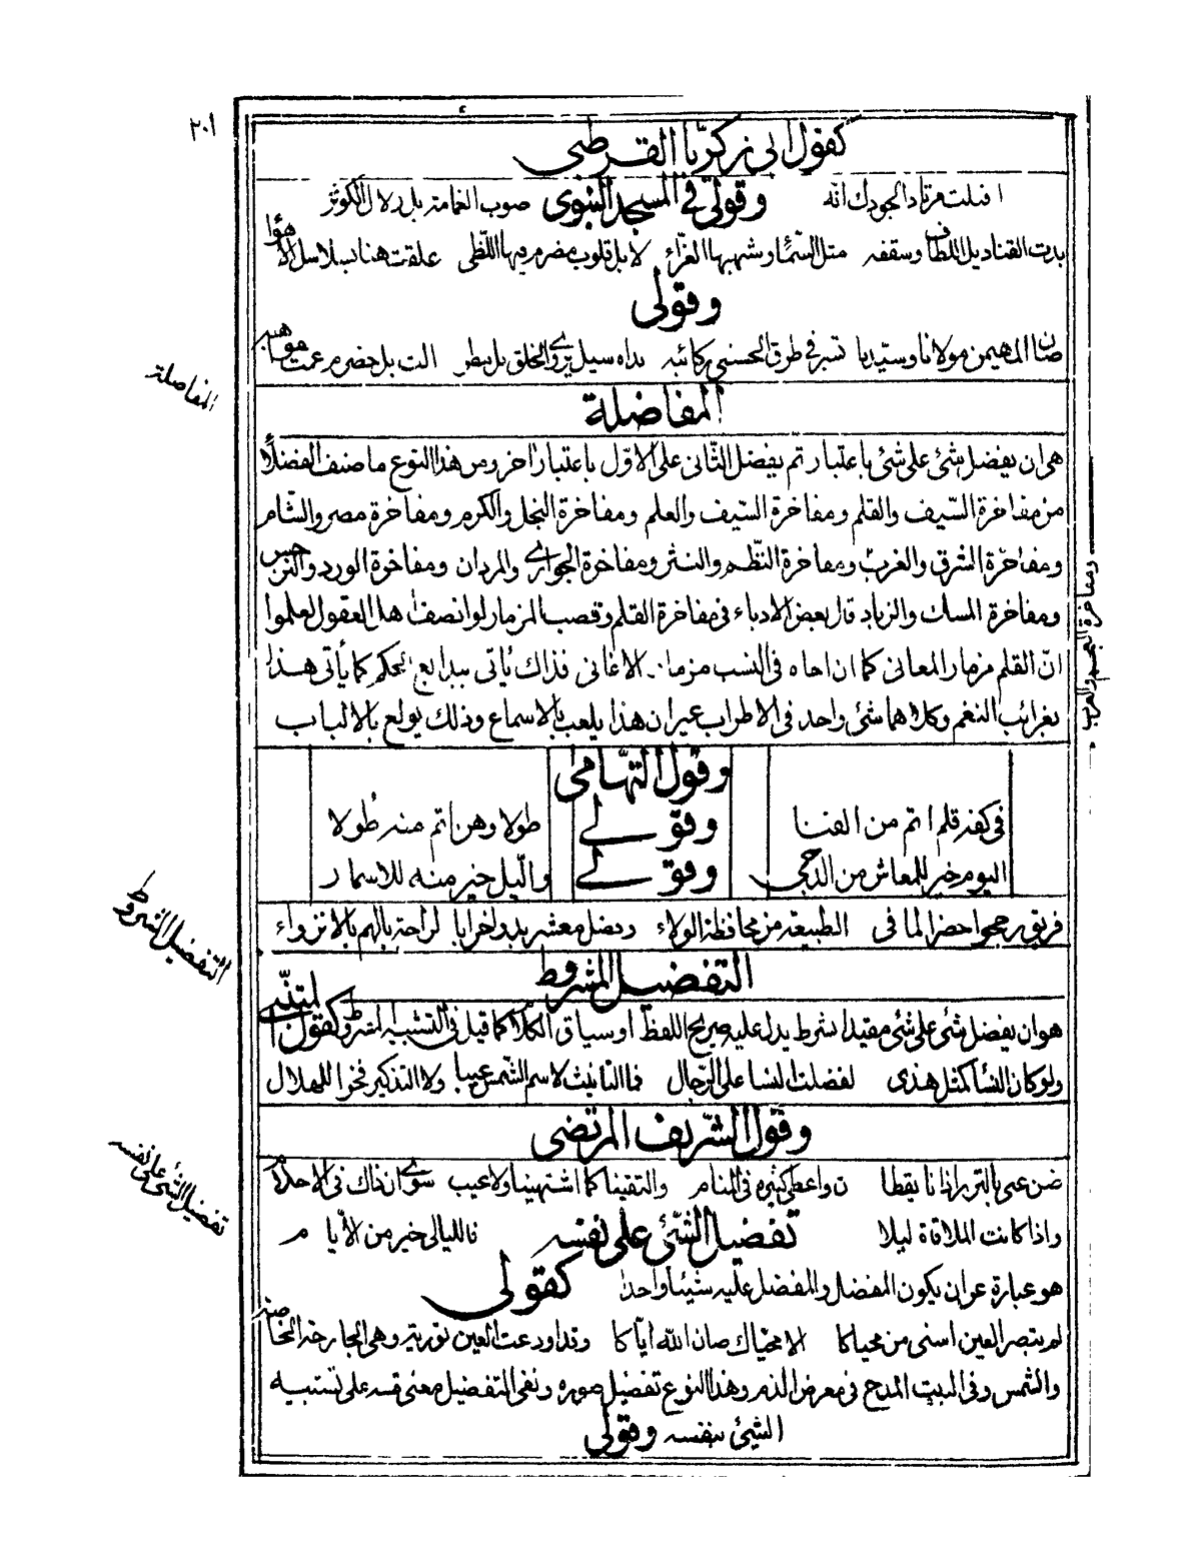 ٢٠١
كقول ابي زكريا القرطبي
اقبلت مرتاد الجودك انه وقولي في المسجد النبوي صوب الغمامة بل زلال الكوثر
بدت القناديل اللطاف وسقفه مثل السماء وشهبها الغراء لا بل قلوب مضرم فيها اللظى علقت هنا بسلاسل الاهواء
وقولي
صان المهيمن مولانا وسيدنا تسير في طرق الحسنى ركائبه نداه سيل يروي الخلق بل مطر الت بل خضرم عمت مواهبه
المفاضلة
المفاضلة
هي ان يفضل شئ على شئ باعتبار ثم يفضل الثاني على الاول باعتبار اخر ومن هذا النوع ما صنف الفضلاء
من مفاخرة السيف والقلم ومفاخرة السيف والعلم ومفاخرة البخل والكرم ومفاخرة مصر والشام
ومفاخرة الشرق والغرب ومفاخرة النظم والنثر ومفاخرة الجواري والمردان ومفاخرة الورد والنرجس
ومفاخرة العجم والعرب
ومفاخرة المسك والزباد قال بعض الادباء في مفاخرة القلم وقصب المزمار لو انصف اهل العقول لعلموا
ان القلم مزمار المعاني كما ان اخاه في النسب مزمار الاغاني فذاك يأتي ببدايع الحكم كما يأتي هذا
بغرائب النغم وكلاهما شئ واحد في الاطراب غير ان هذا يلعب بالاسماع وذلك يولع بالالباب
وقول التهامي
في كفه قلم اتم من القنا وقولي طولا وهن اتم منه طولا
اليوم خير للمعاش من الدجى وقولي والليل خير منه للاسمار
فريق رجحوا حضرا لما في الطبيعة من محافظة الولاء وفضل معشر بدوا خرابا لراحة بالهم بالانزواء
التفضيل المشروط
التفضيل المشروط
هو ان يفضل شئ على شئ مقيدا بشرط يدل عليه صريح اللفظ او سياق الكلام كما قيل في التشبيه المشروط كقول المتنبي
ولو كان النسا كمثل هذي لفضلت النسا على الرجال فما التانيث لاسم الشمس عيبا ولا التذكير فخرا للهلال
وقول الشريف المرتضى
ضن عني بالنزر اذ انا يقظا ن واعطى كثيره في المنام والتقينا كما اشتهينا ولا عيب سوى ان ذاك في الاحلام
تفضيل الشئ على نفسه
واذا كانت الملاقاة ليلا تفضيل الشئ على نفسه فالليالي خير من الايام
هو عبارة عن ان يكون المفضل والمفضل عليه شيئا واحدا كقولي
لم يبصر العين اسنى من محياكا الا محياك صان الله اياكا وقد اودعت العين تورية وهي الجارحة الخاصة
والشمس وفي البيت المدح في معرض الذم وهذا النوع تفضيل صورة ونفي التفضيل معنى قسه على تشبيه
الشئ بنفسه وقولي